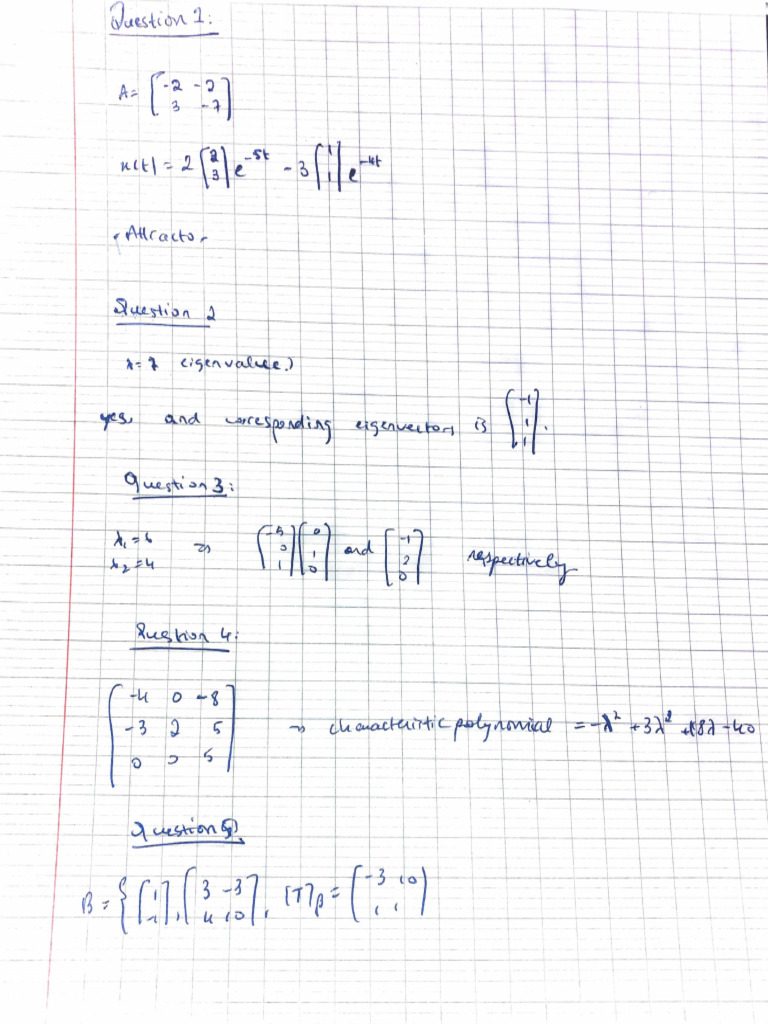 Question 1:
A = [-2 -2
3 -7]
x(t) = 2 [2
3] e^-5t - 3 [1
1] e^-4t
Attractor
Question 2
eigenvalue.)
yes, and corresponding eigenvectors is [-1
1
1].
Question 3:
λ₁=6
λ₂=4 ⇒ [-5
0
1] [0
1
0] and [-1
2
0] respectively
Question 4:
[-4 0 -8
-3 2 5
0 0 5] → characteristic polynomial = -λ² + 3λ² + 18λ - 40
Question 5
B = { [1], [3 -3
4 10], [T]β = [-3 10
1 1]